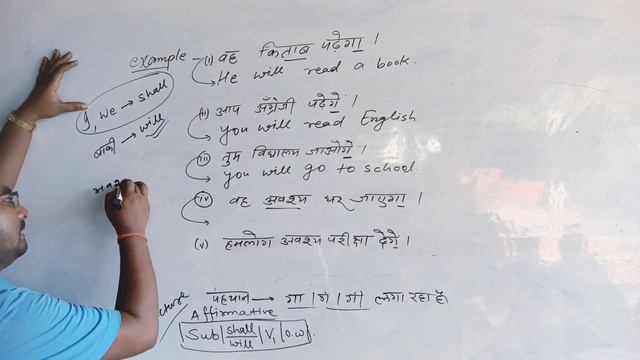 example
(i) वह किताब पढ़ेगा ।
He will read a book.
I, we → shall
बाकी → will
(ii) आप अँग्रेजी पढ़ेगें ।
you will read English.
(iii) तुम विद्यालय जाओगे ।
you will go to school.
(iv) वह अवश्य घर जाएगा ।
(v) हमलोग अवश्य परीक्षा देगें ।
पहचान → गा । गे । गी लगा रहा है
Affirmative
Sub | shall will | V₁ | O.W.